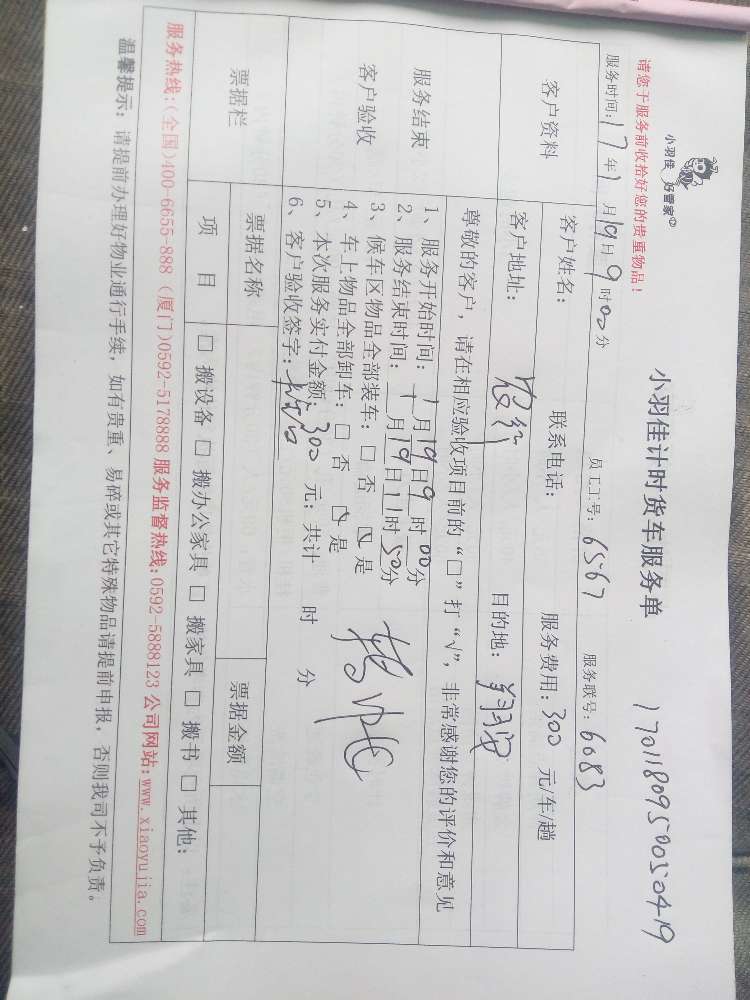 小羽佳 好管家
小羽佳计时货车服务单
1701180950050419
请您于服务前收拾好您的贵重物品！
服务时间：17年1月19日9时00分 员工工号：6567 服务联号：6083
客户资料
客户姓名： 联系电话： 服务费用：300 元/车/趟
客户地址： 目的地：
尊敬的客户，请在相应验收项目前的“□”打“√”，非常感谢您的评价和意见
服务结束
客户验收
1、服务开始时间：1月19日9时00分
2、服务结束时间：1月19日11时50分
3、候车区物品全部装车：□否 ☑是
4、车上物品全部卸车：□否 ☑是
5、本次服务实付金额：300元；共计 时 分
6、客户验收签字：
票据栏 票据名称 票据金额
项目 □搬设备 □搬办公家具 □搬家具 □搬书 □其他：
服务热线：(全国)400-6655-888（厦门)0592-5178888 服务监督热线：0592-5888123 公司网站：www.xiaoyujia.com
温馨提示：请提前办理好物业通行手续，如有贵重、易碎或其它特殊物品请提前申报，否则我司不予负责。